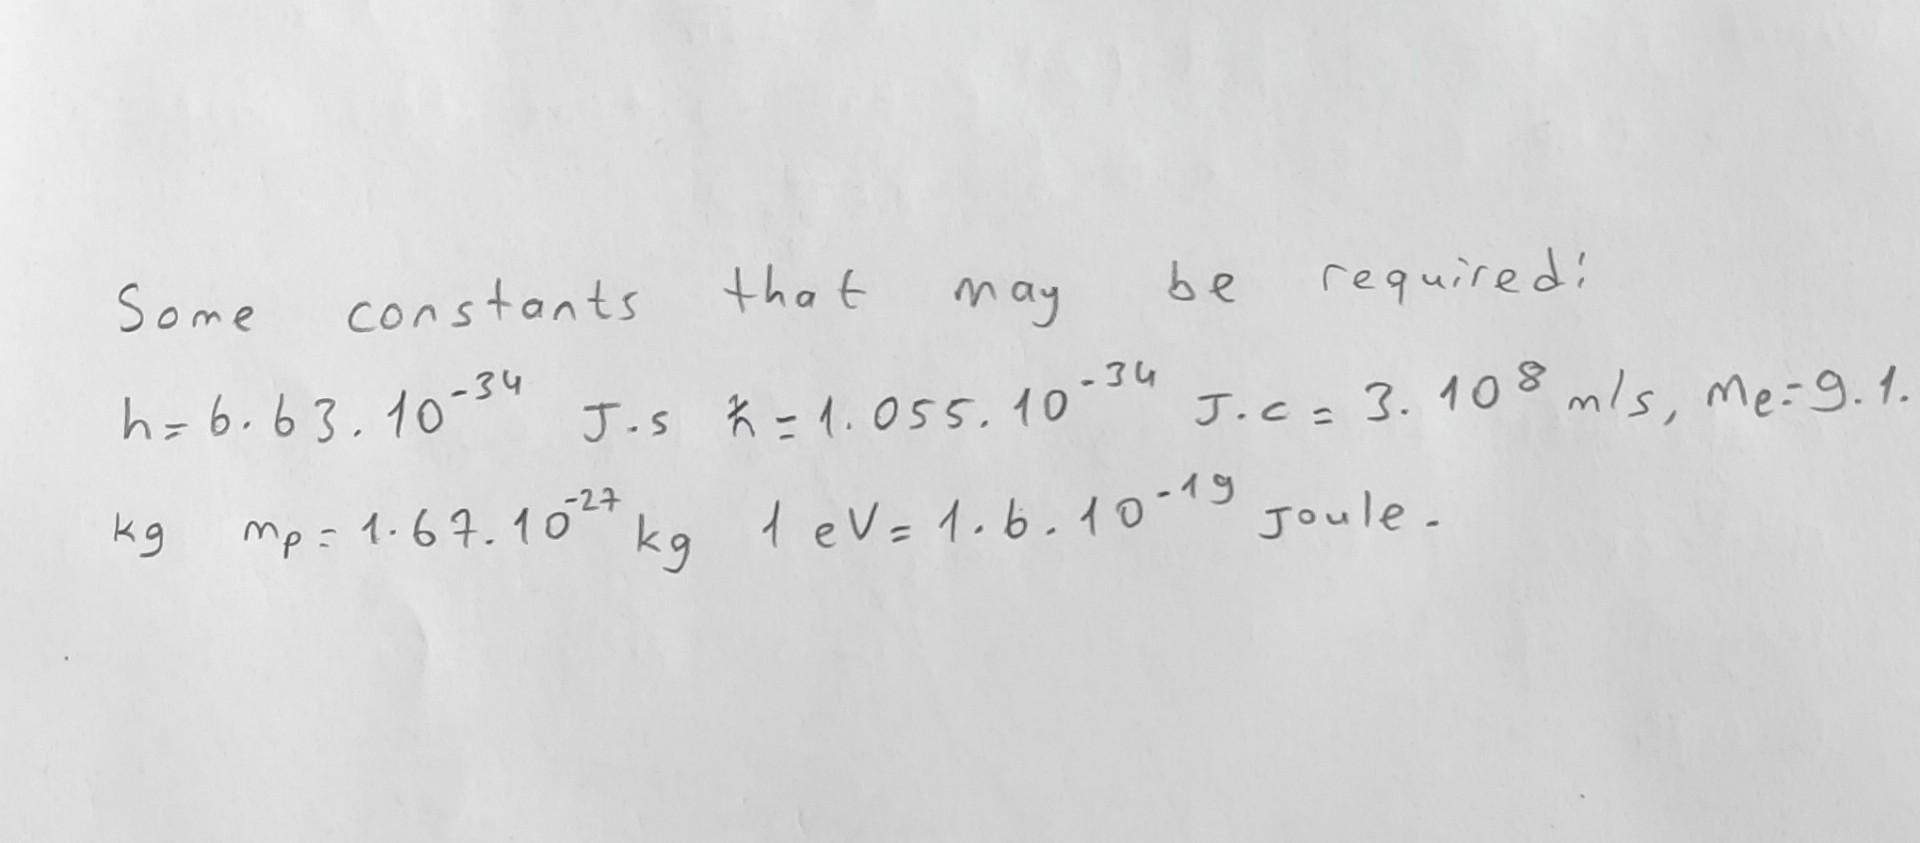 Some constants that may be required:
h=6.63.10⁻³⁴ J.s ℏ=1.055.10⁻³⁴ J.c=3.10⁸ m/s, Me=9.1.
kg mp=1.67.10⁻²⁷ kg 1 eV=1.6.10⁻¹⁹ Joule.